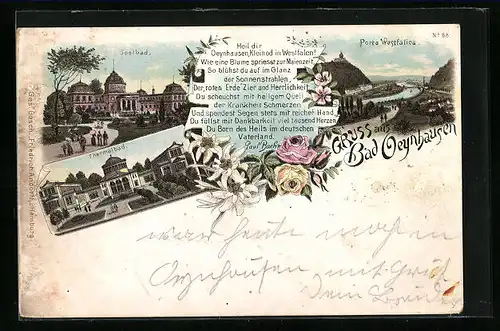 Soolbad.
Heil dir
Oeynhausen, Kleinod in Westfalen!
Wie eine Blume spriesst zur Maienzeit,
So blühst du auf im Glanz
der Sonnenstrahlen,
Der „roten Erde" Zier and Herrlichkeit
Du scheuchst mit heil'gem Quell
der Krankheit Schmerzen
Und spendest Segen stets mit reicher Hand,
Du füllst mit Dankbarkeit viel tausend Herzen
Du Born des Heils im deutschen
Vaterland.
Paul
Porta Westfalica.
No 66
Thermalbad.
Gruss aus
Bad Oeynhausen
war heute
Oeynhausen mit Gruß
Dein Bruder